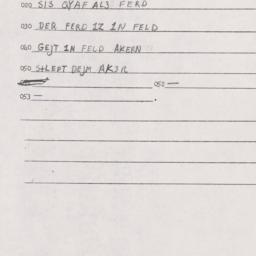 020 SIS GYAF ALJ FERD
030 DER FERD IZ IN FELD
040 GEJT IN FELD AKERN
050 SHLEPT DEJM AKJR
052 —
053 —